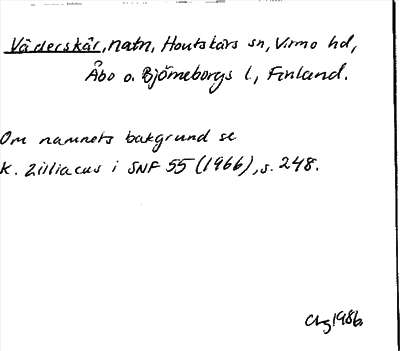 Väderskär, natn, Houtskärs sn, Virmo hd,
Åbo o. Björneborgs l, Finland.
Om namnets bakgrund se
K. Zilliacus i SNF 55 (1966), s. 248.
1986.